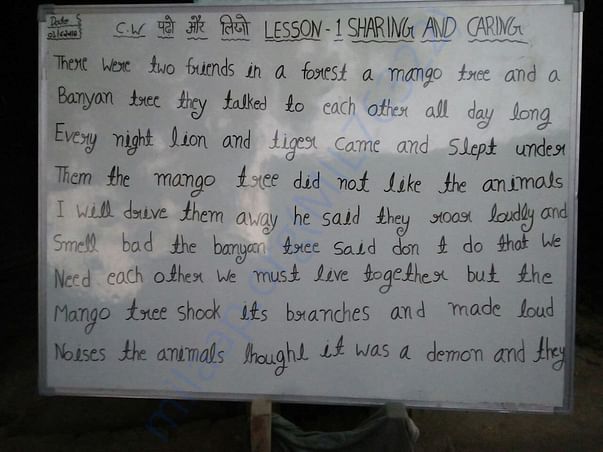 Date
C.W पढो और लिखो LESSON - 1 SHARING AND CARING
There were two friends in a forest a mango tree and a
Banyan tree they talked to each other all day long
Every night lion and tiger came and slept under
Them the mango tree did not like the animals
I will drive them away he said they roar loudly and
Smell bad the banyan tree said don t do that we
Need each other we must live together but the
Mango tree shook its branches and made loud
Noises the animals thought it was a demon and they